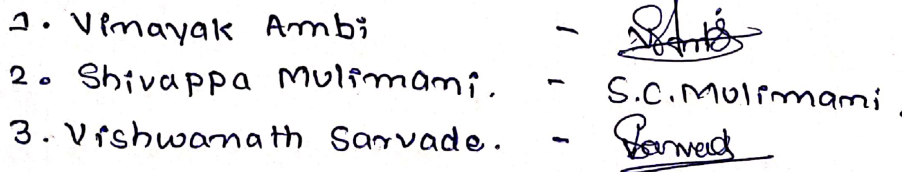 1. Vinayak Ambi -
2. Shivappa Mulimani. - S.C.Mulimani.
3. Vishwanath Sarvade. - Sarvade